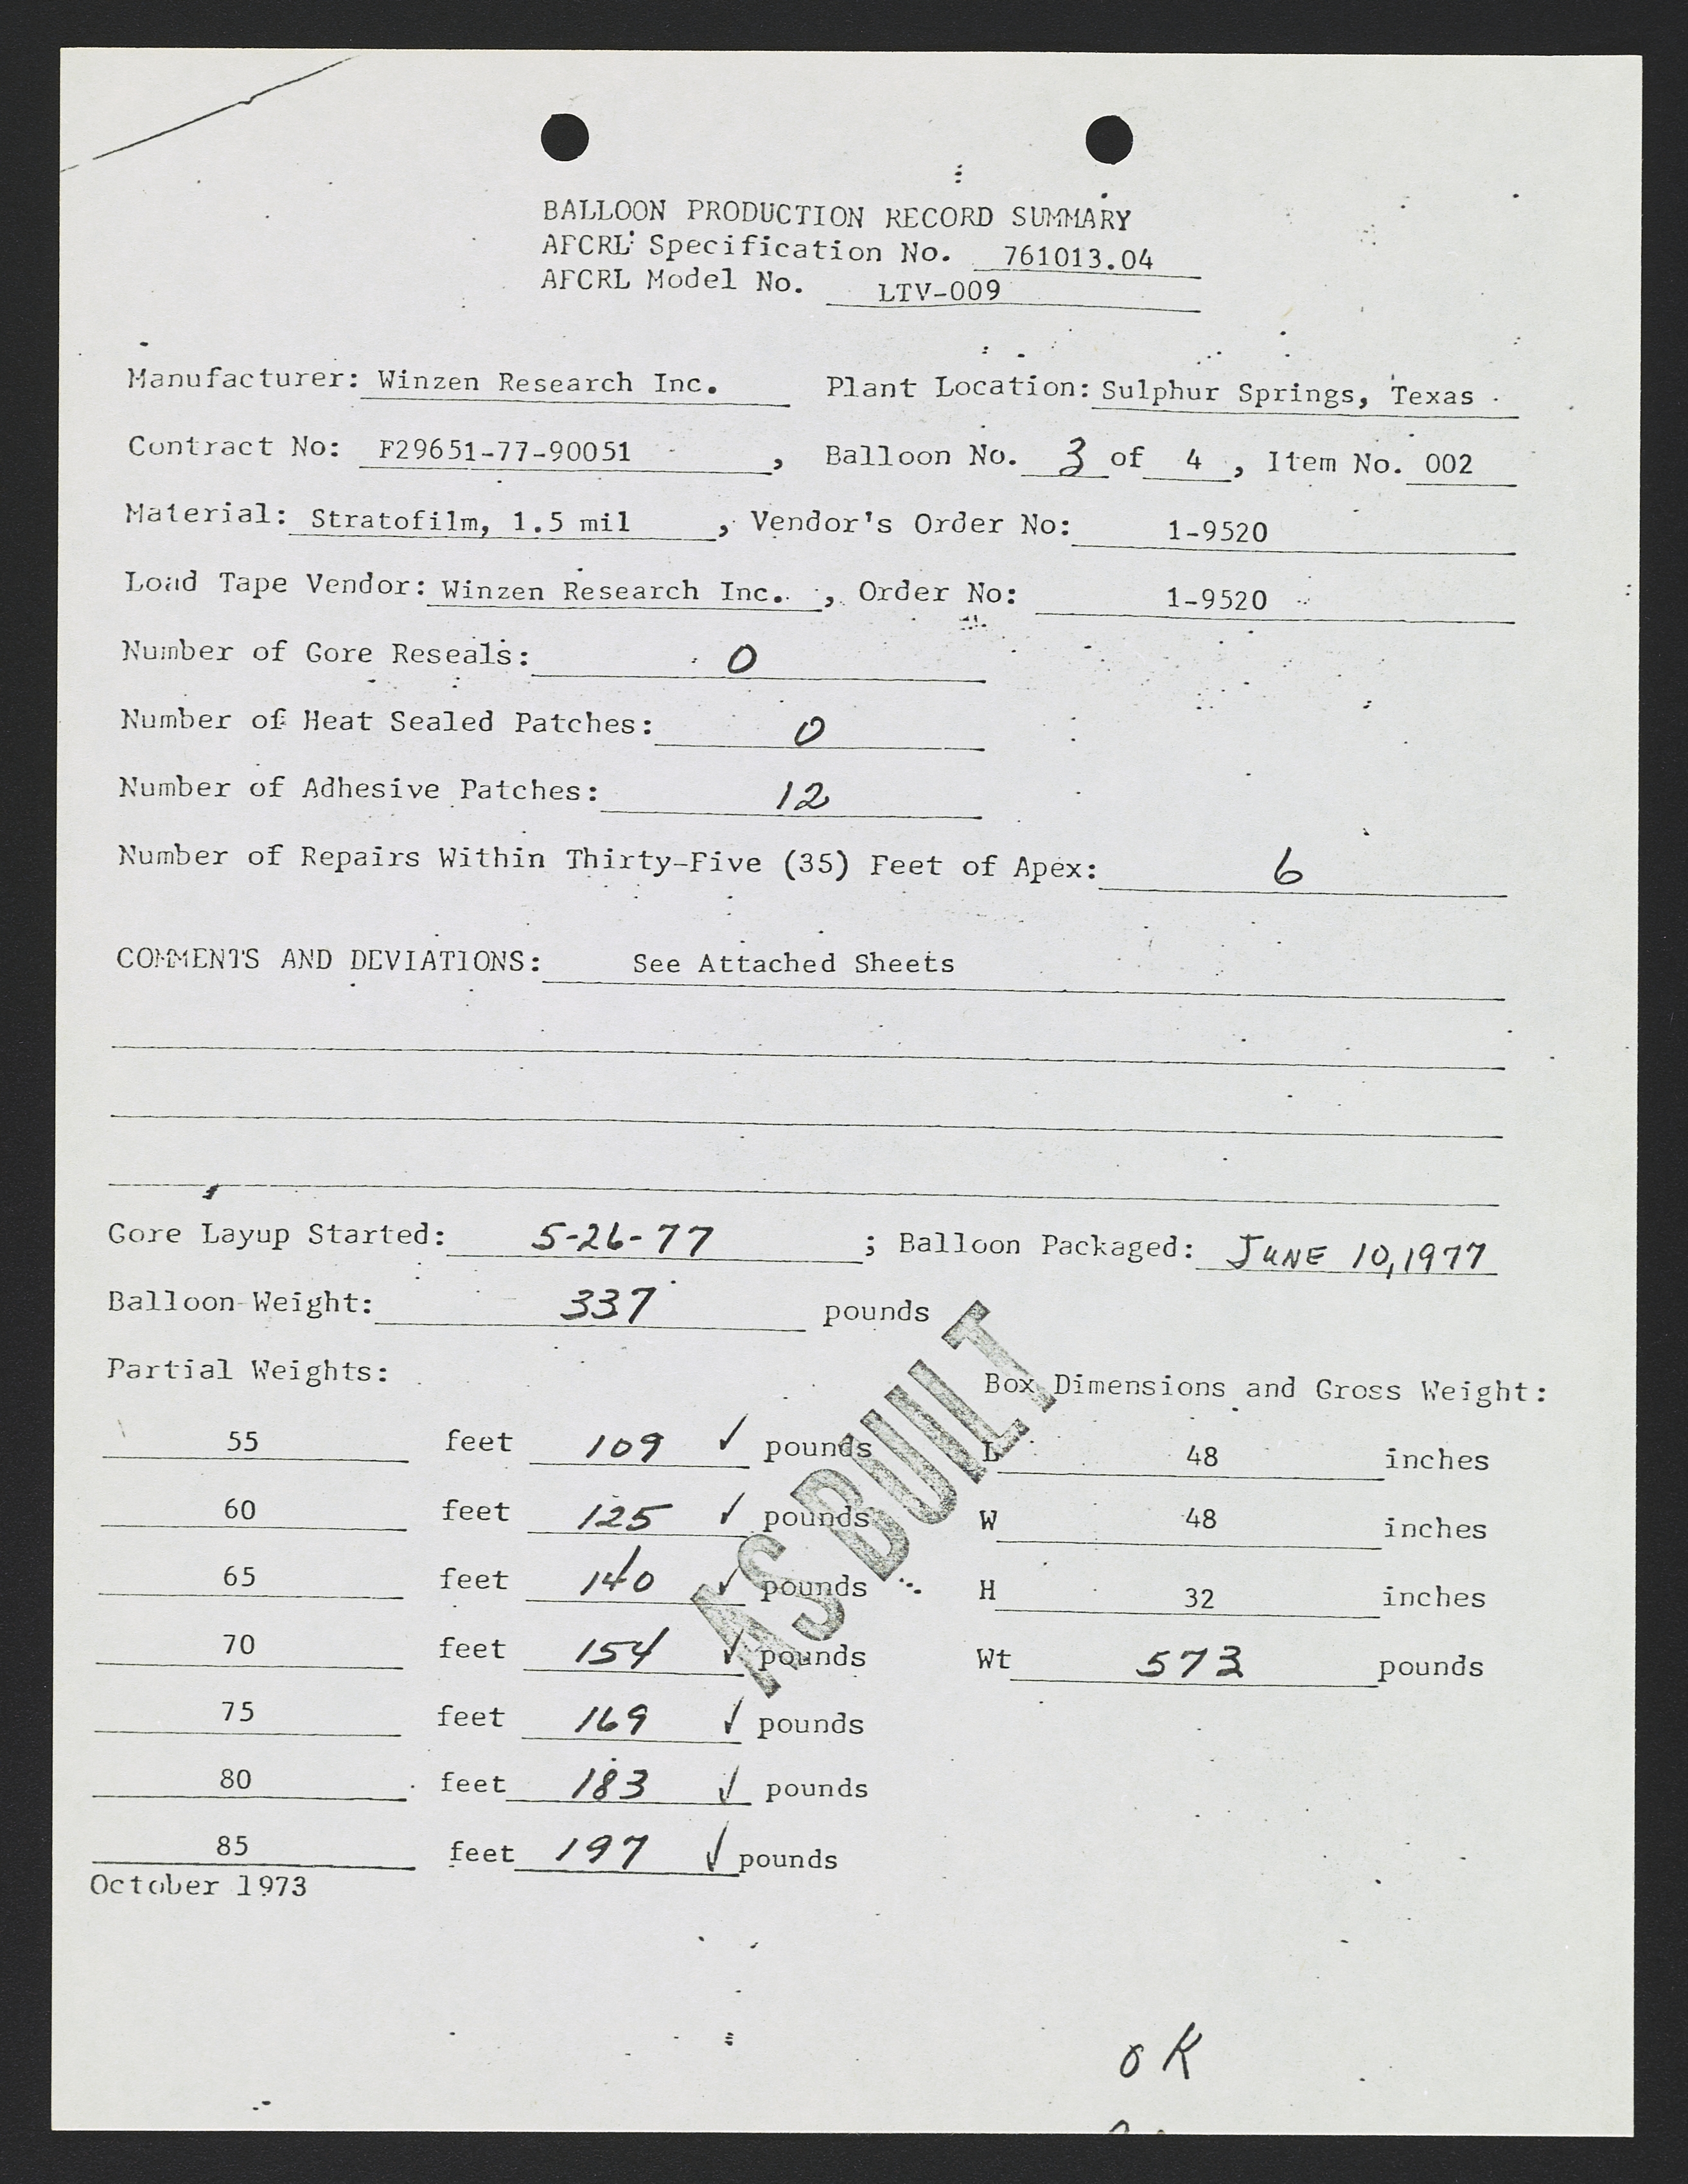 BALLOON PRODUCTION RECORD SUMMARY
AFCRL Specification No. 761013.04
AFCRL Model No. LTV-009
Manufacturer: Winzen Research Inc. Plant Location: Sulphur Springs, Texas
Contract No: F29651-77-90051 , Balloon No. 3 of 4 , Item No. 002
Material: Stratofilm, 1.5 mil , Vendor's Order No: 1-9520
Load Tape Vendor: Winzen Research Inc. , Order No: 1-9520
Number of Gore Reseals: 0
Number of Heat Sealed Patches: 0
Number of Adhesive Patches: 12
Number of Repairs Within Thirty-Five (35) Feet of Apex: 6
COMMENTS AND DEVIATIONS: See Attached Sheets
Gore Layup Started: 5-26-77 ; Balloon Packaged: JUNE 10, 1977
Balloon Weight: 337 pounds
Partial Weights: Box Dimensions and Gross Weight:
55 feet 109 ✓ pounds L 48 inches
60 feet 125 ✓ pounds W 48 inches
65 feet 140 ✓ pounds H 32 inches
70 feet 154 ✓ pounds Wt 573 pounds
75 feet 169 ✓ pounds
80 feet 183 ✓ pounds
85 feet 197 ✓ pounds
AS BUILT
October 1973
OK